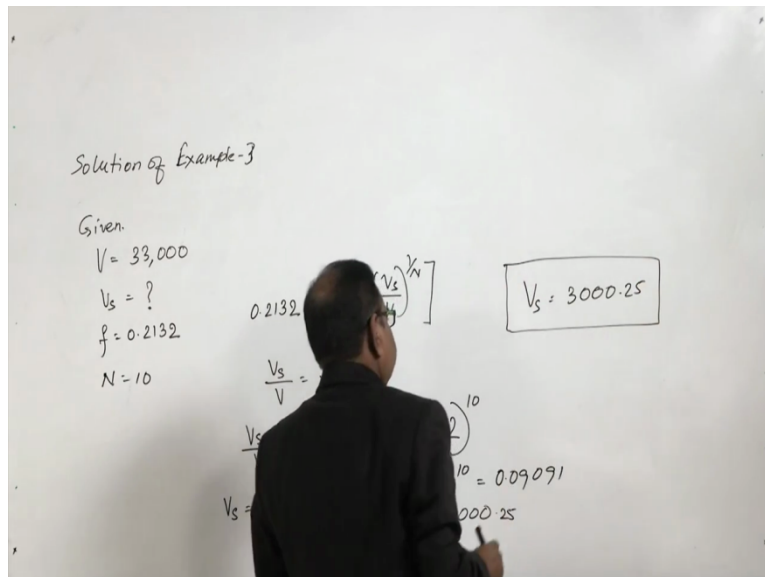 Solution of Example-3
Given.
V = 33,000
Vs = ?
f = 0.2132
N = 10
0.2132 (Vs/V)^1/N]
Vs/V =
Vs )^10
10 = 0.09091
Vs = 000.25
Vs = 3000.25